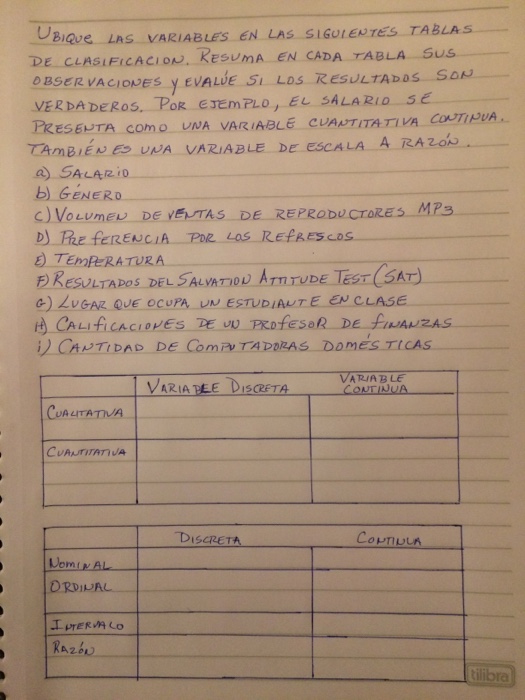 UBIQUE LAS VARIABLES EN LAS SIGUIENTES TABLAS
DE CLASIFICACION. RESUMA EN CADA TABLA SUS
OBSERVACIONES Y EVALÚE SI LOS RESULTADOS SON
VERDADEROS. POR EJEMPLO, EL SALARIO SE
PRESENTA COMO UNA VARIABLE CUANTITATIVA CONTINUA.
TAMBIÉN ES UNA VARIABLE DE ESCALA A RAZÓN.
a) SALARIO
b) GÉNERO
c) VOLUMEN DE VENTAS DE REPRODUCTORES MP3
D) PREFERENCIA POR LOS REFRESCOS
E) TEMPERATURA
F) RESULTADOS DEL SALVATION ATTITUDE TEST (SAT)
G) LUGAR QUE OCUPA UN ESTUDIANTE EN CLASE
H) CALIFICACIONES DE UN PROFESOR DE FINANZAS
i) CANTIDAD DE COMPUTADORAS DOMÉSTICAS
VARIABLE DISCRETA VARIABLE CONTINUA
CUALITATIVA
CUANTITATIVA
DISCRETA CONTINUA
NOMINAL
ORDINAL
INTERVALO
RAZÓN
tilibra